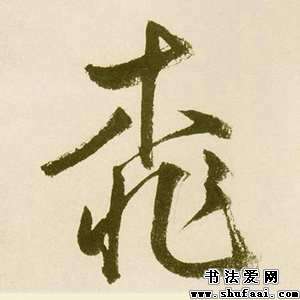 乖
书法爱网
www.shufaai.com